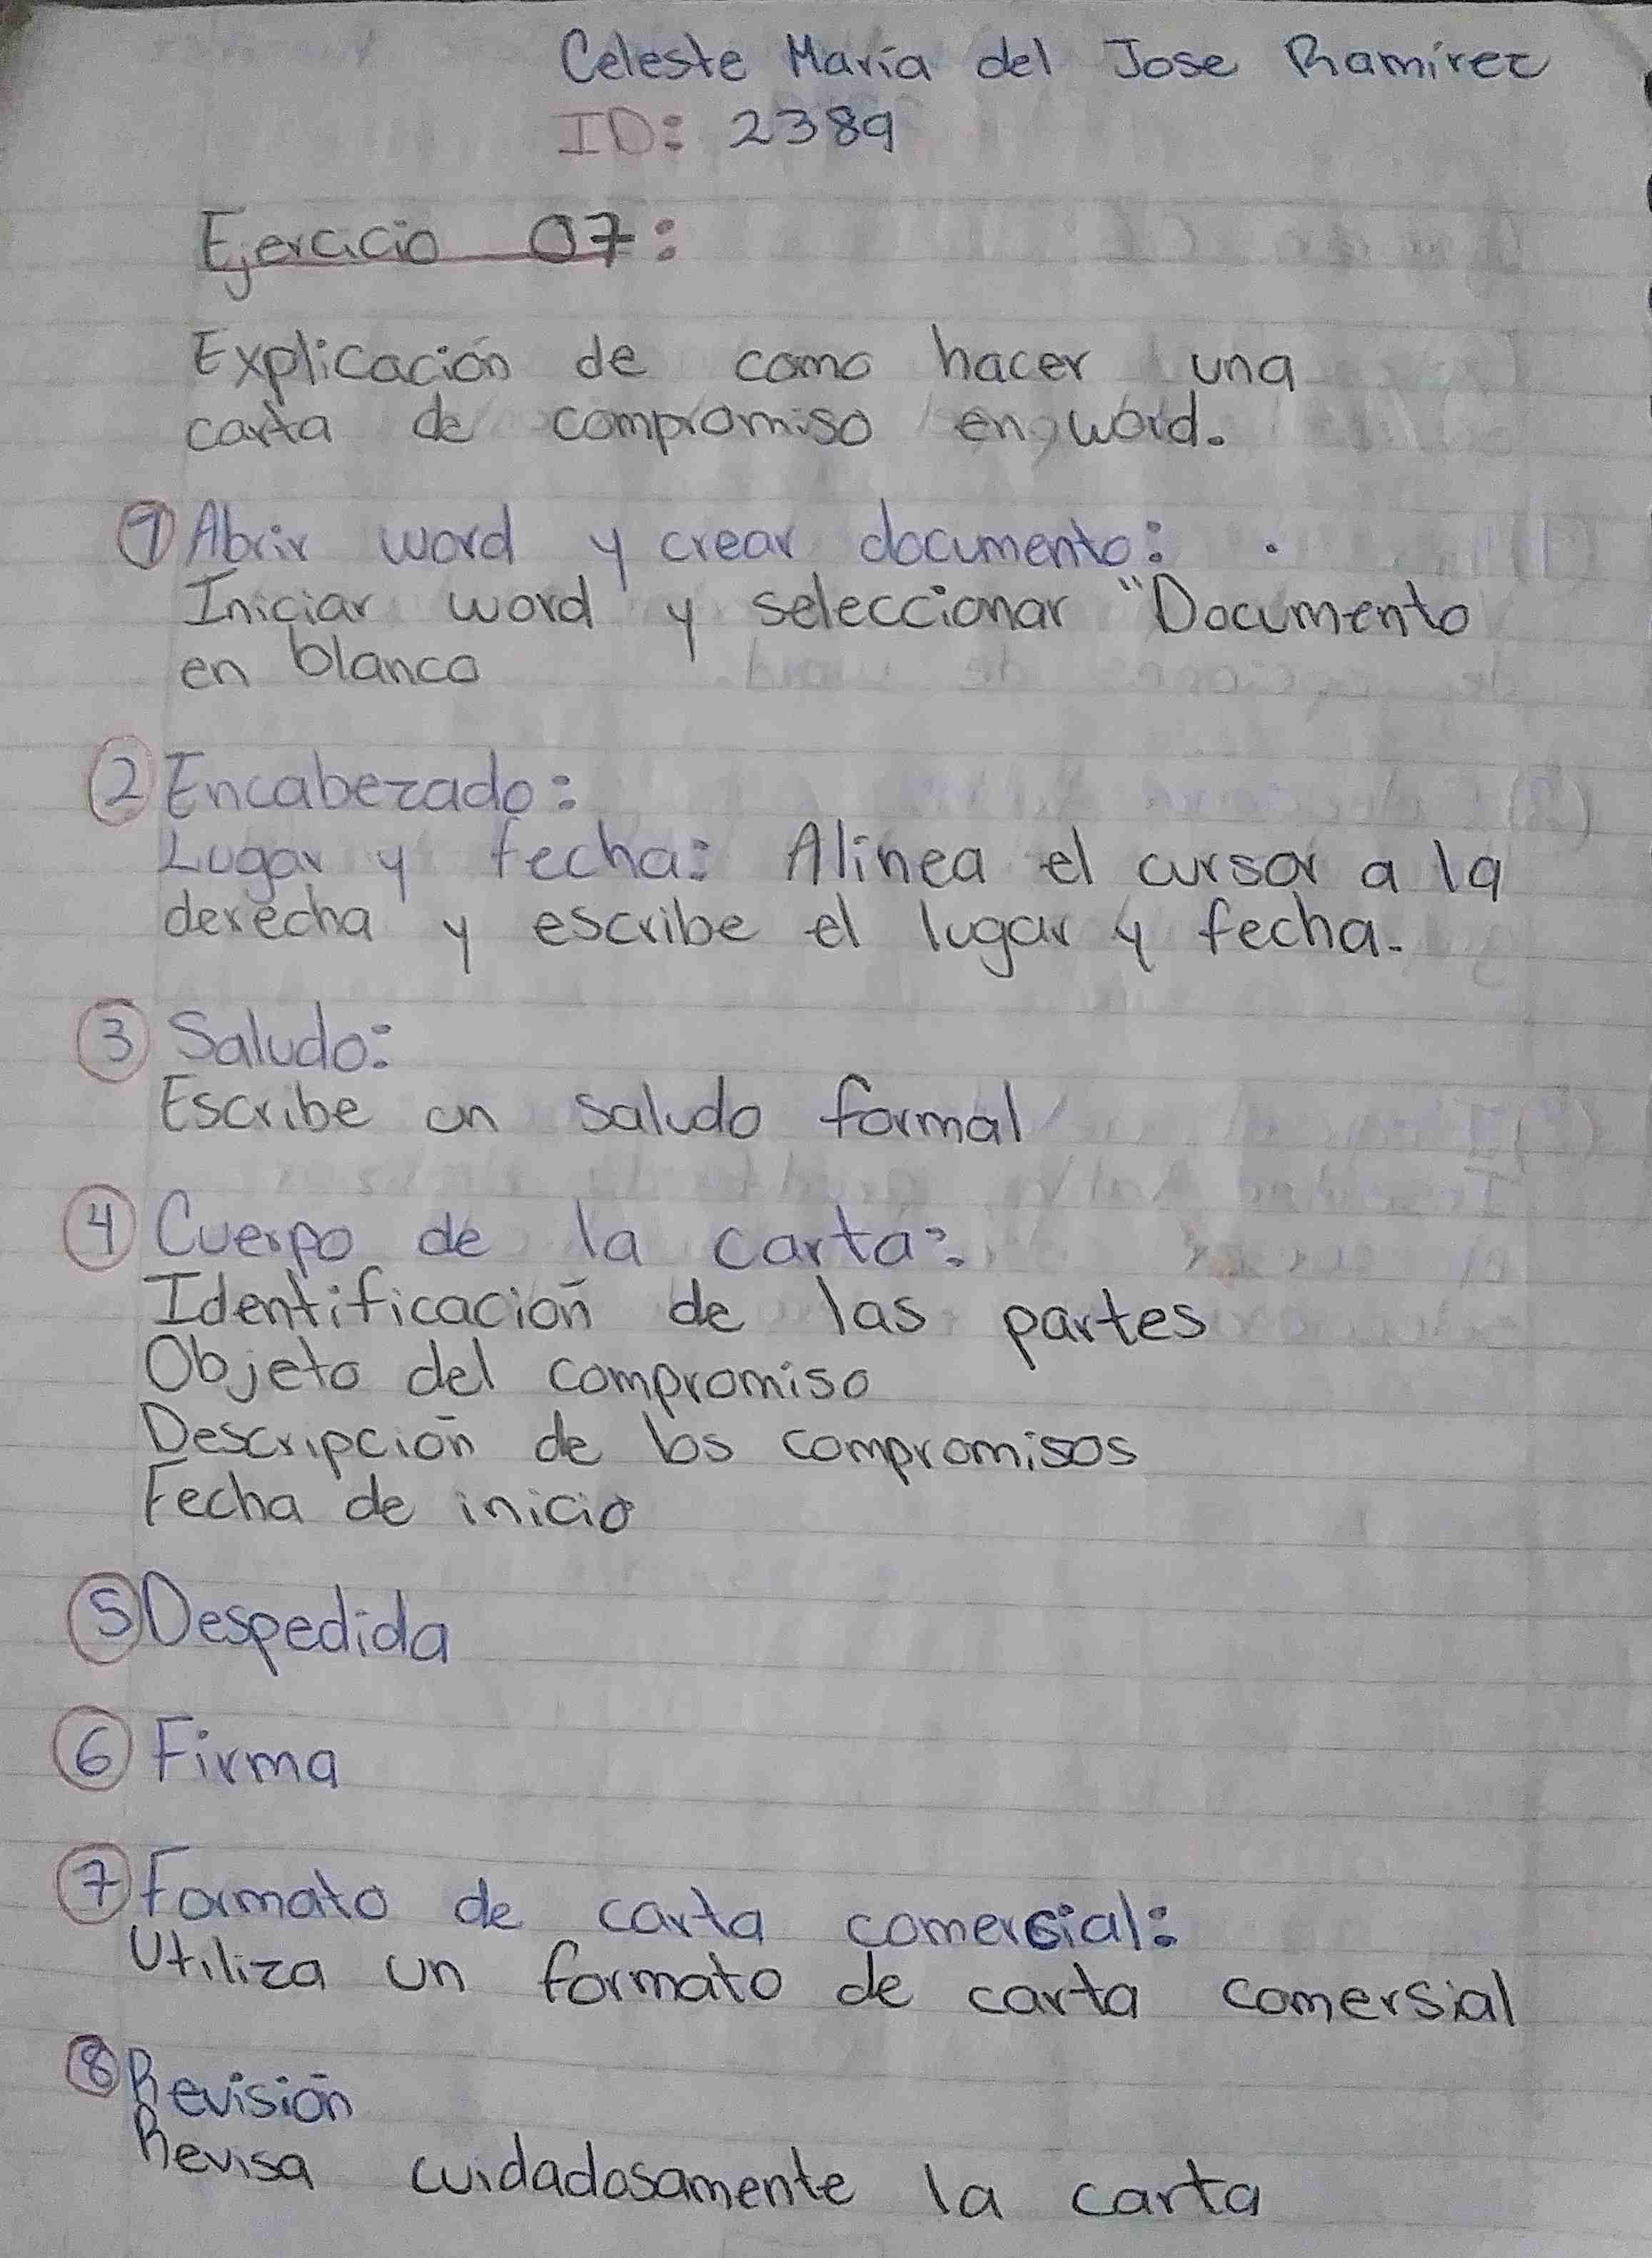 Celeste María del Jose Ramírez
ID: 2389
Ejercicio 07:
Explicación de como hacer una
carta de compromiso en word.
1 Abrir word y crear documento:
Iniciar word y seleccionar "Documento
en blanco
2 Encabezado:
Lugar y fecha: Alinea el cursor a la
derecha y escribe el lugar y fecha.
3 Saludo:
Escribe un saludo formal
4 Cuerpo de la carta:
Identificación de las partes
Objeto del compromiso
Descripción de los compromisos
Fecha de inicio
5 Despedida
6 Firma
7 Formato de carta comercial:
Utiliza un formato de carta comersial
8 Revisión
Revisa cuidadosamente la carta